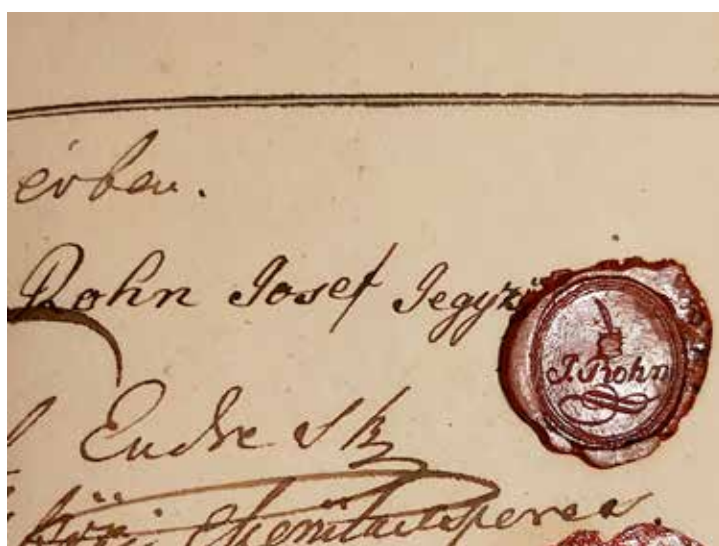 évben.
Rohn Josef Jegyző
J. Rohn
Endre sk